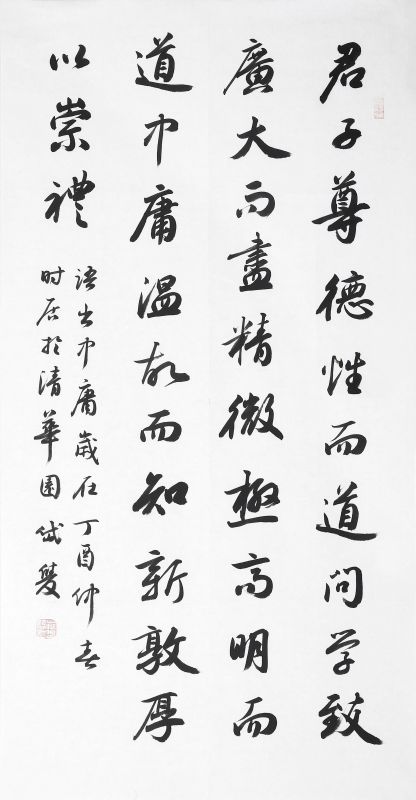 君子尊德性而道问学致
廣大而盡精微極高明而
道中庸温故而知新敦厚
以崇禮
语出中庸歲在丁酉仲春
时居於清華園